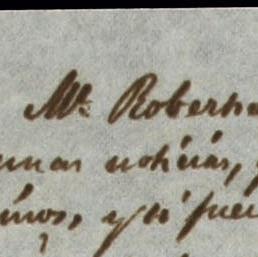 Mr. Roberts
unas noticias,
inos, y si fue